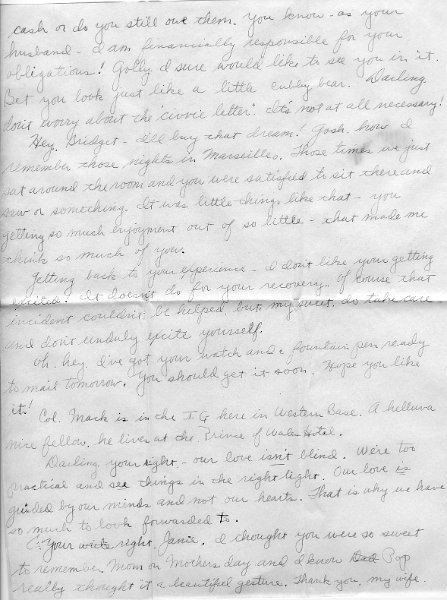 cash or do you still owe them. You know - as your
husband - I am financially responsible for your
obligations! Golly I sure would like to see you in it.
Bet you look just like a little cubby bear. Darling
don't worry about the "civvie letter". It's not at all necessary!
Hey, Bridget - I'll buy that dream! Gosh, how I
remember those nights in Marseilles. Those times we just
sat around the room and you were satisfied to sit there and
sew or something. It was little things like that - you
getting so much enjoyment out of so little - that made me
think so much of you.
Getting back to your experience - I don't like your getting
excited! It doesn't do for your recovery. Of course that
incident couldn't be helped but, my sweet, do take care
and don't unduly excite yourself.
Oh, hey, I've got your watch and a fountain pen ready
to mail tomorrow. You should get it soon. Hope you like
it!
Col. Mack is in the I G here in Western Base. A helluva
nice fellow, he lives at the Prince of Wales Hotel.
Darling your right - our love isn't blind. We're too
practical and see things in the right light. Our love is
guided by our minds and not our hearts. That is why we have
so much to look forwarded to.
Your right, Janie. I thought you were so sweet
to remember Mom on Mothers day and I know Pop
really thought it a beautiful gesture. Thank you, my wife.